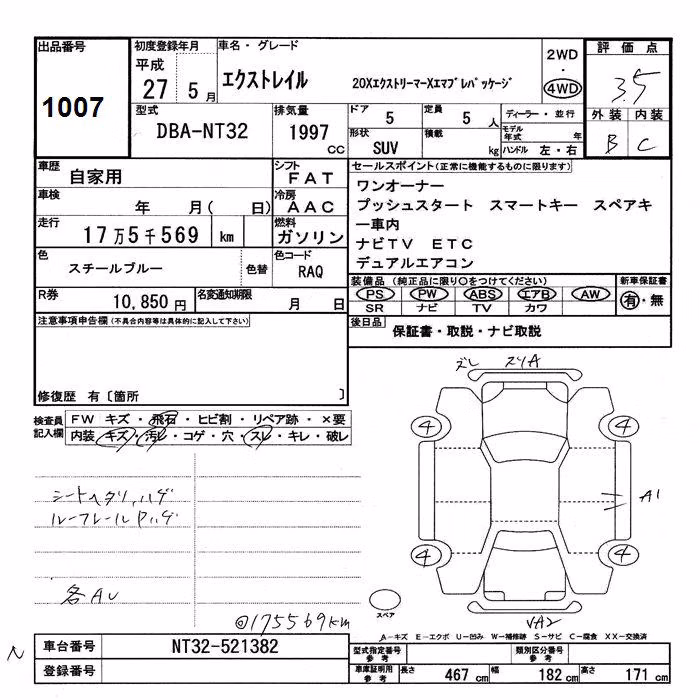 出品番号
1007
初度登録年月
平成
27 5月
車名・グレード
エクストレイル 20XエクストリーマーXエマブレパッケージ
2WD
・
4WD
評価点
3.5
外装 内装
B C
型式
DBA-NT32
排気量
1997 cc
ドア 5
定員 5 人
形状 SUV
積載 kg
ディーラー・並行
モデル年式 年
ハンドル 左・右
車歴 自家用
シフト FAT
車検 年 月( 日)
冷房 AAC
走行 17万5千569 km
燃料 ガソリン
色 スチールブルー 色替
色コード RAQ
R券 10,850円
名変通知期限 月 日
セールスポイント(正常に機能するものに限ります)
ワンオーナー
プッシュスタート スマートキー スペアキ
ー車内
ナビTV ETC
デュアルエアコン
装備品(純正品に限り○をつけてください)
PS PW ABS エアB AW
SR ナビ TV カワ
新車保証書
有・無
後日品 保証書・取説・ナビ取説
注意事項申告欄(不具合内容等は具体的に記入して下さい)
修復歴 有〔箇所 〕
検査員記入欄
FW キズ・飛石・ヒビ割・リペア跡・×要
内装 キズ・汚レ・コゲ・穴・スレ・キレ・破レ
シートヘタリ,ハゲ
ルーフレールPハゲ
各AU
@175569km
ズレ スリA
4 4
A1
4 4
スペア
VA2
A-キズ E-エクボ U-凹み W-補修跡 S-サビ C-腐食 XX-交換済
車台番号 NT32-521382
登録番号
型式指定番号 参考
類別区分番号 参考
車庫証明用 参考
長さ 467 cm 幅 182 cm 高さ 171 cm